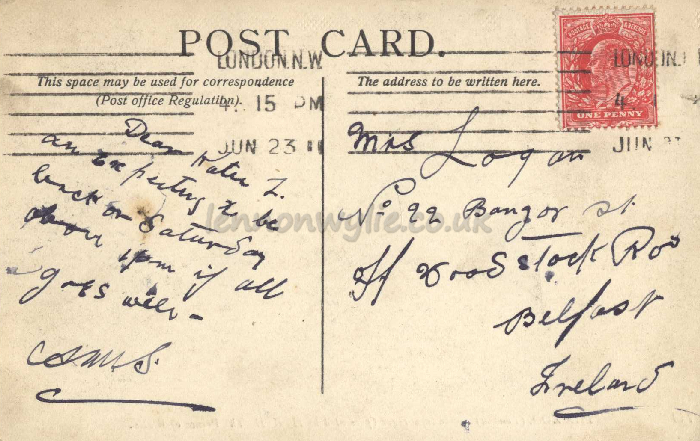 POST CARD.
LONDON.N.W
4. 15 PM
JUN 23 11
This space may be used for correspondence
(Post office Regulation).
The address to be written here.
POSTAGE REVENUE
ONE PENNY
LONDON.N.
4
JUN 23
Dear Katie I.
am expecting to be
back on Saturday
about 1pm if all
goes well -
Mrs Logan
No 22 Bangor st
Off Woodstock Roa
Belfast
Ireland
lennonwylie.co.uk